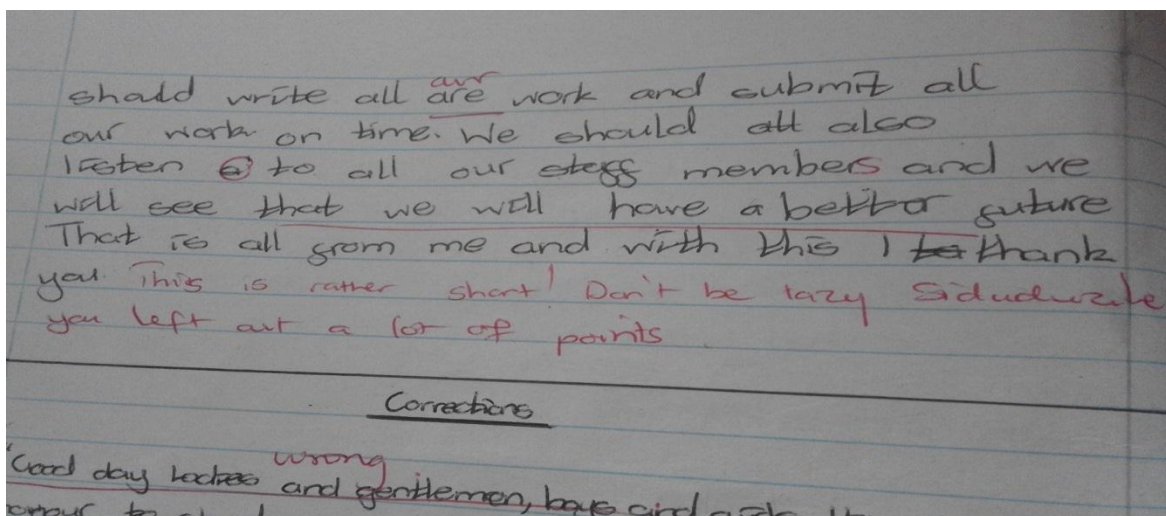 our
should write all are work and submit all
our work on time. We should all also
listen to all our staff members and we
will see that we will have a better future
That is all from me and with this I to thank
you. This is rather short! Don't be lazy
you left out a lot of points
Corrections
wrong
Good day ladies and gentlemen, boys and